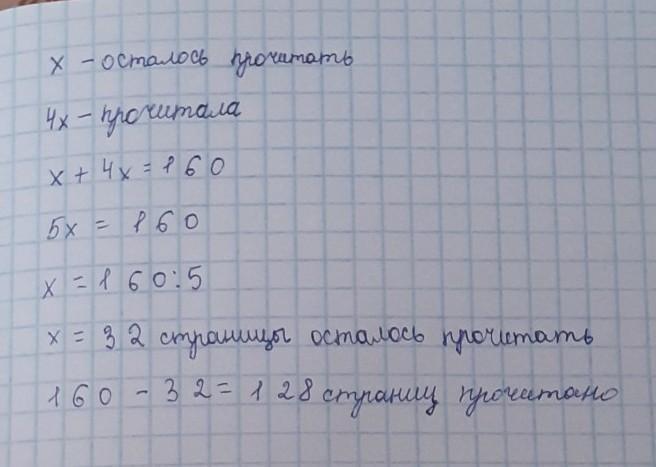 x - осталось прочитать
4x - прочитала
x + 4x = 160
5x = 160
x = 160:5
x = 32 страницы осталось прочитать
160 - 32 = 128 страниц прочитано